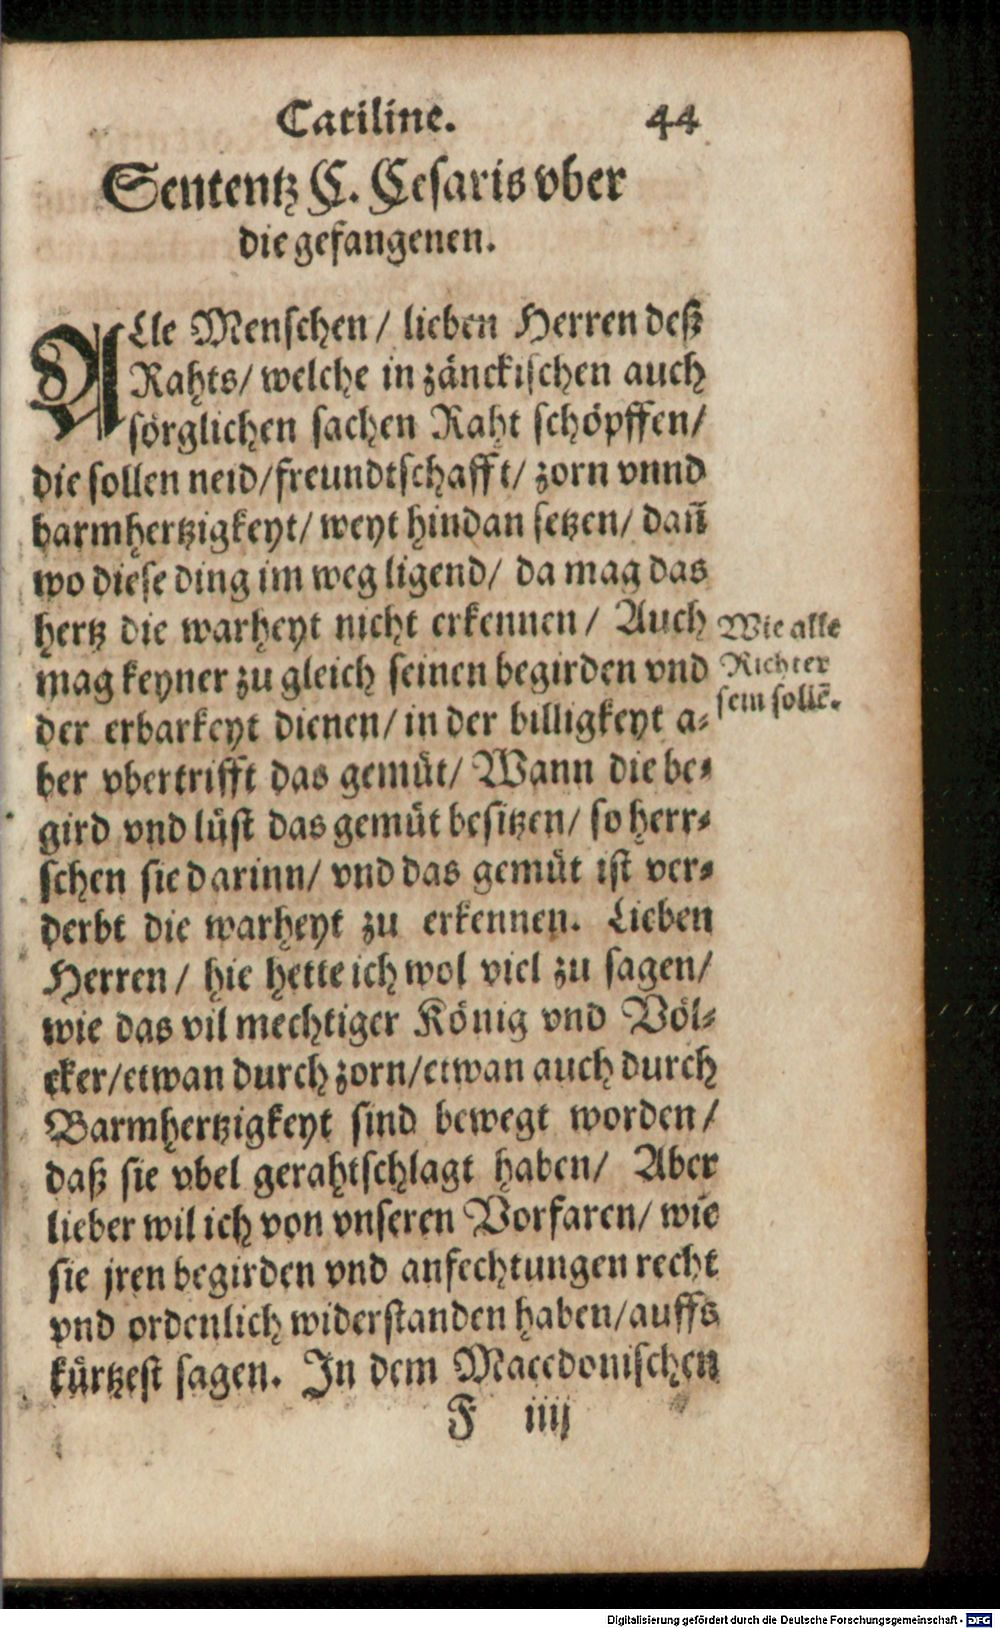 Catiline. 44
Sententz C. Cesaris vber
die gefangenen.
ALle Menschen / lieben Herren deß
Rahts / welche in zänckischen auch
sörglichen sachen Raht schöpffen /
die sollen neid / freundtschafft / zorn vnnd
barmhertzigkeyt / weyt hindan setzen / dañ
wo diese ding im weg ligend / da mag das
hertz die warheyt nicht erkennen / Auch
mag keyner zu gleich seinen begirden vnd
der erbarkeyt dienen / in der billigkeyt a-
ber vbertrifft das gemüt / Wann die be-
gird vnd lüst das gemüt besitzen / so herr-
schen sie darinn / vnd das gemüt ist ver-
derbt die warheyt zu erkennen. Lieben
Herren / hie hette ich wol viel zu sagen /
wie das vil mechtiger König vnd Völ-
cker / etwan durch zorn / etwan auch durch
Barmhertzigkeyt sind bewegt worden /
daß sie vbel gerahtschlagt haben / Aber
lieber wil ich von vnseren Vorfaren / wie
sie jren begirden vnd anfechtungen recht
vnd ordenlich widerstanden haben / auffs
kürtzest sagen. In dem Macedonischen
F iiij
Wie alle
Richter
sein sollē.
Digitalisierung gefördert durch die Deutsche Forschungsgemeinschaft - DFG